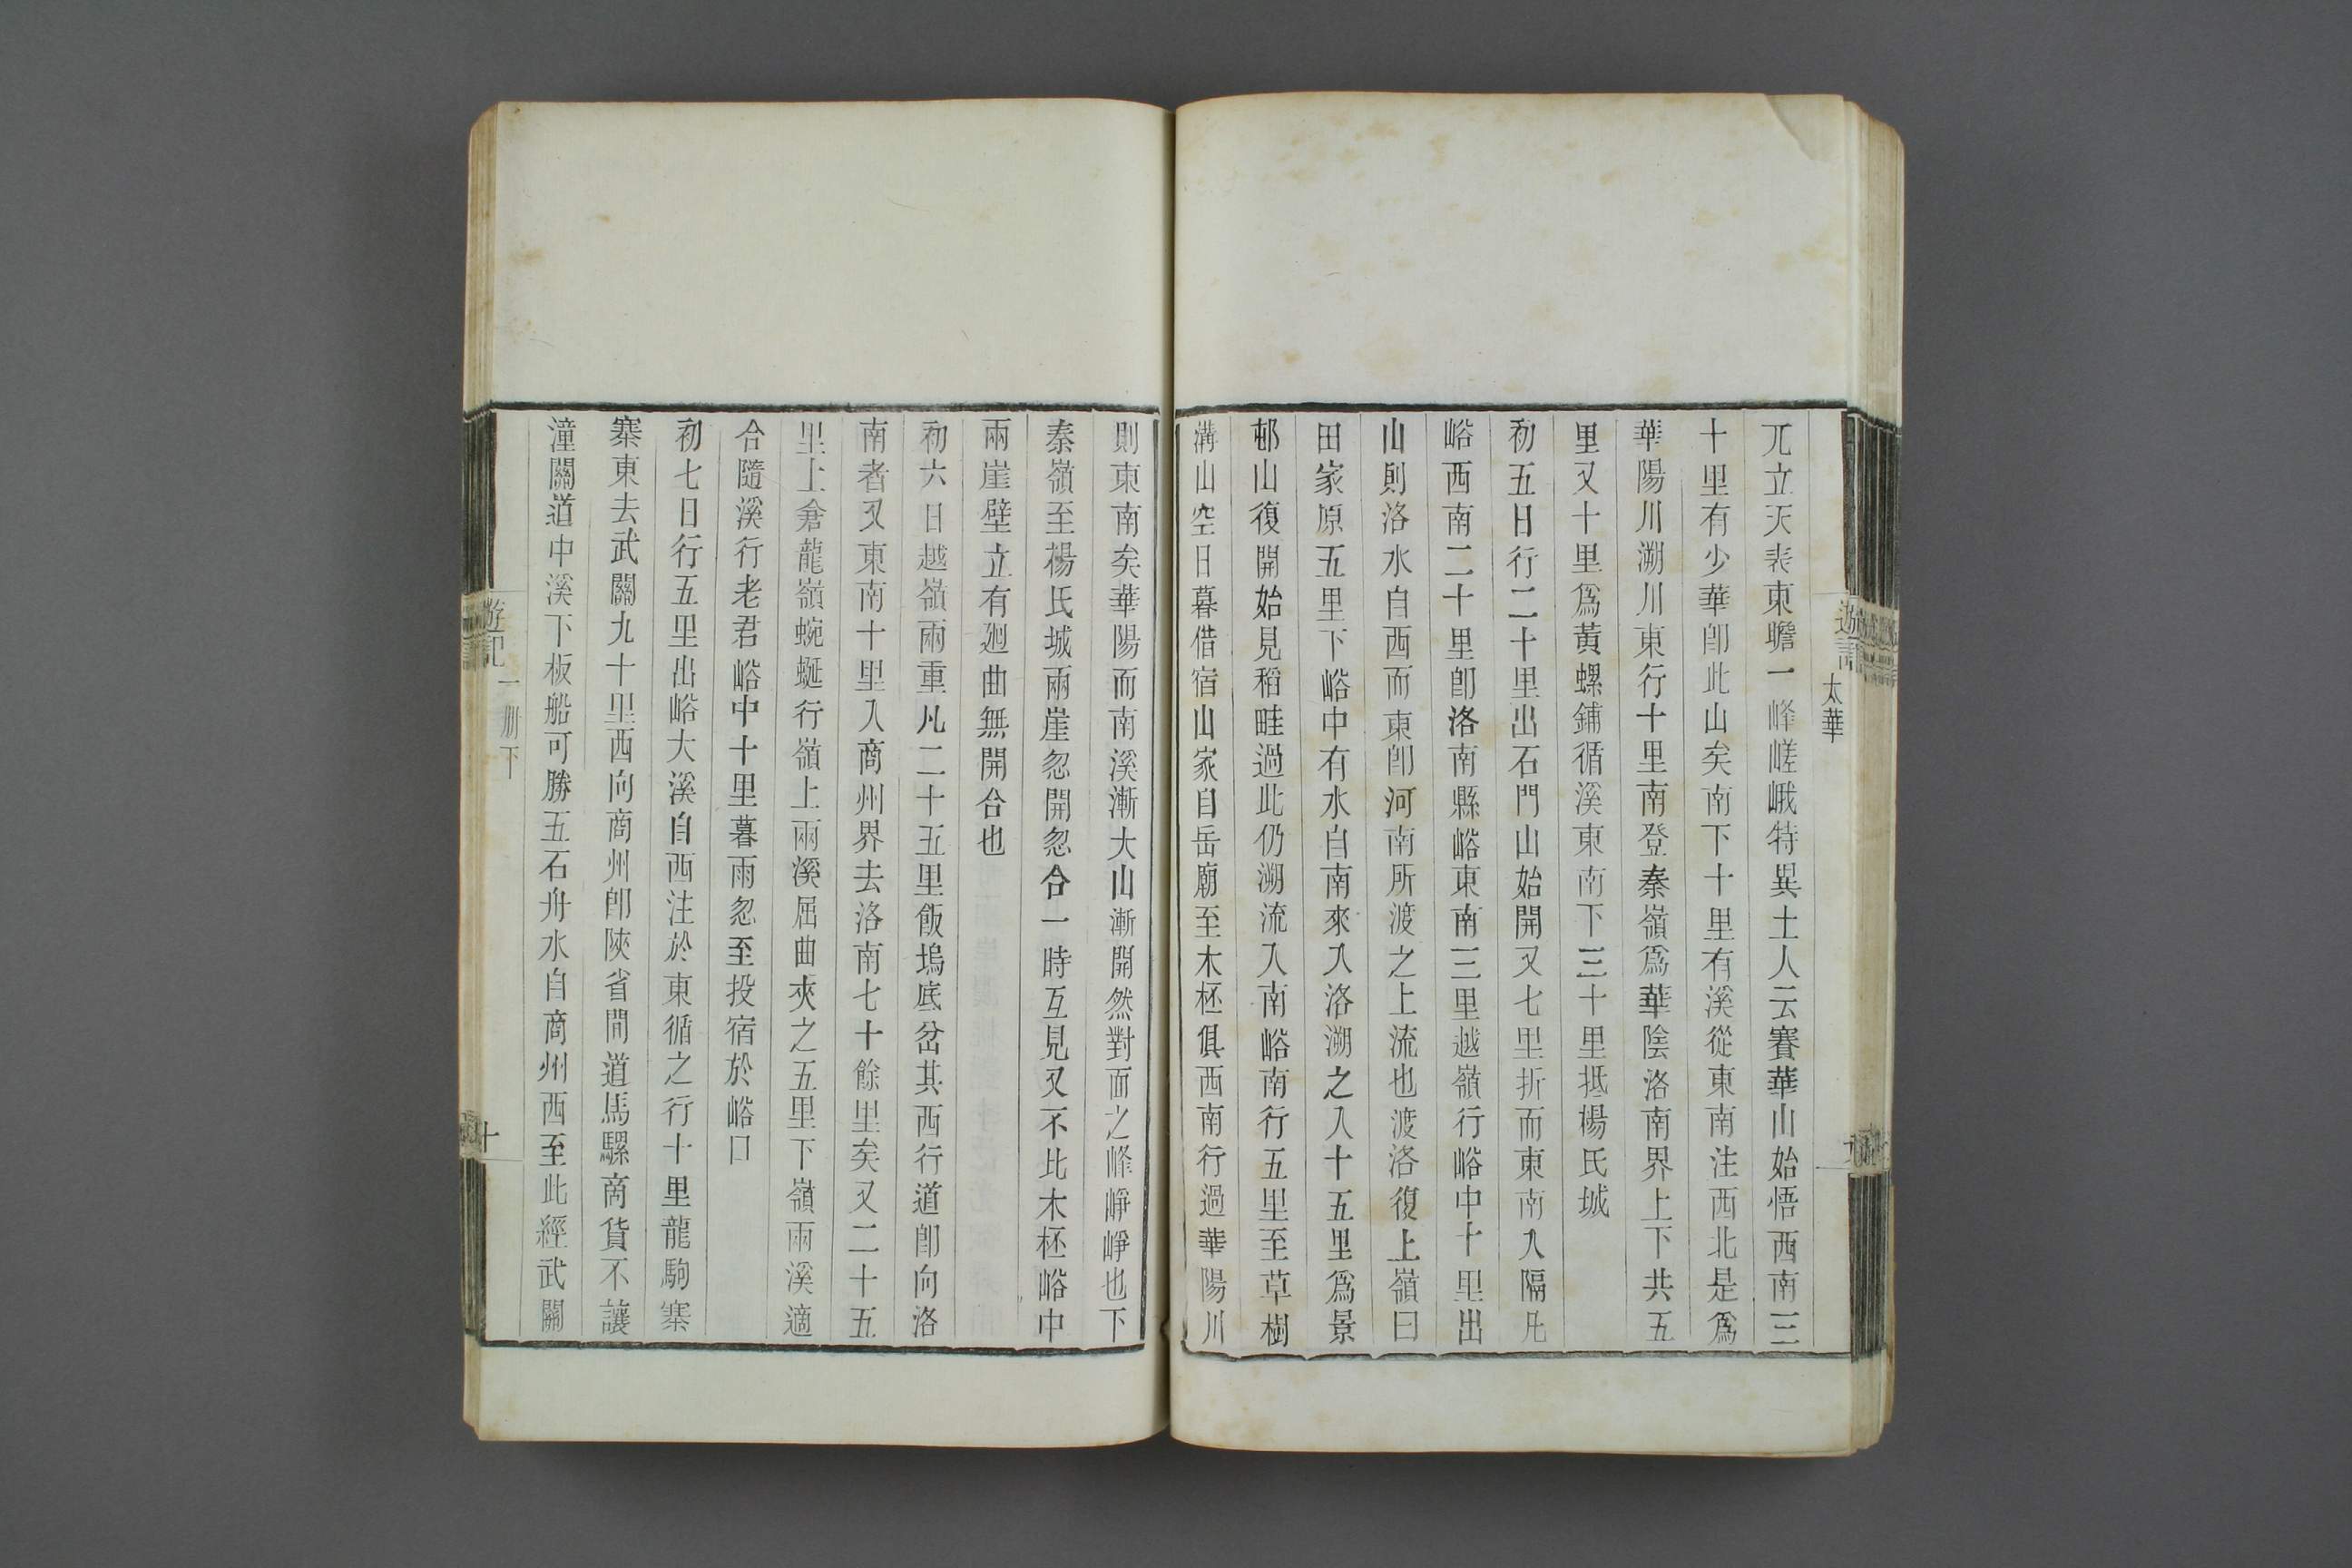 遊記
太華
兀立天表東瞻一峰嵯峨特異土人云賽華山始悟西南三
十里有少華卽此山矣南下十里有溪從東南注西北是爲
華陽川溯川東行十里南登秦嶺爲華陰洛南界上下共五
里又十里爲黃螺鋪循溪東南下三十里抵楊氏城
初五日行二十里出石門山始開又七里折而東南入隔凡
峪西南二十里卽洛南縣峪東南三里越嶺行峪中十里出
山則洛水自西而東卽河南所渡之上流也渡洛復上嶺曰
田家原五里下峪中有水自南來入洛溯之入十五里爲景
邨山復開始見稻畦過此仍溯流入南峪南行五里至草樹
溝山空日暮借宿山家自岳廟至木柸俱西南行過華陽川
則東南矣華陽而南溪漸大山漸開然對面之峰崢崢也下
秦嶺至楊氏城兩崖忽開忽合一時互見又不比木柸峪中
兩崖壁立有廻曲無開合也
初六日越嶺兩重凡二十五里飯塢底岔其西行道卽向洛
南者又東南十里入商州界去洛南七十餘里矣又二十五
里上倉龍嶺蜿蜒行嶺上兩溪屈曲夾之五里下嶺兩溪適
合隨溪行老君峪中十里暮雨忽至投宿於峪口
初七日行五里出峪大溪自西注於東循之行十里龍駒寨
寨東去武關九十里西向商州卽陝省間道馬騾商貨不讓
潼關道中溪下板船可勝五石舟水自商州西至此經武關
遊記
一册下
十